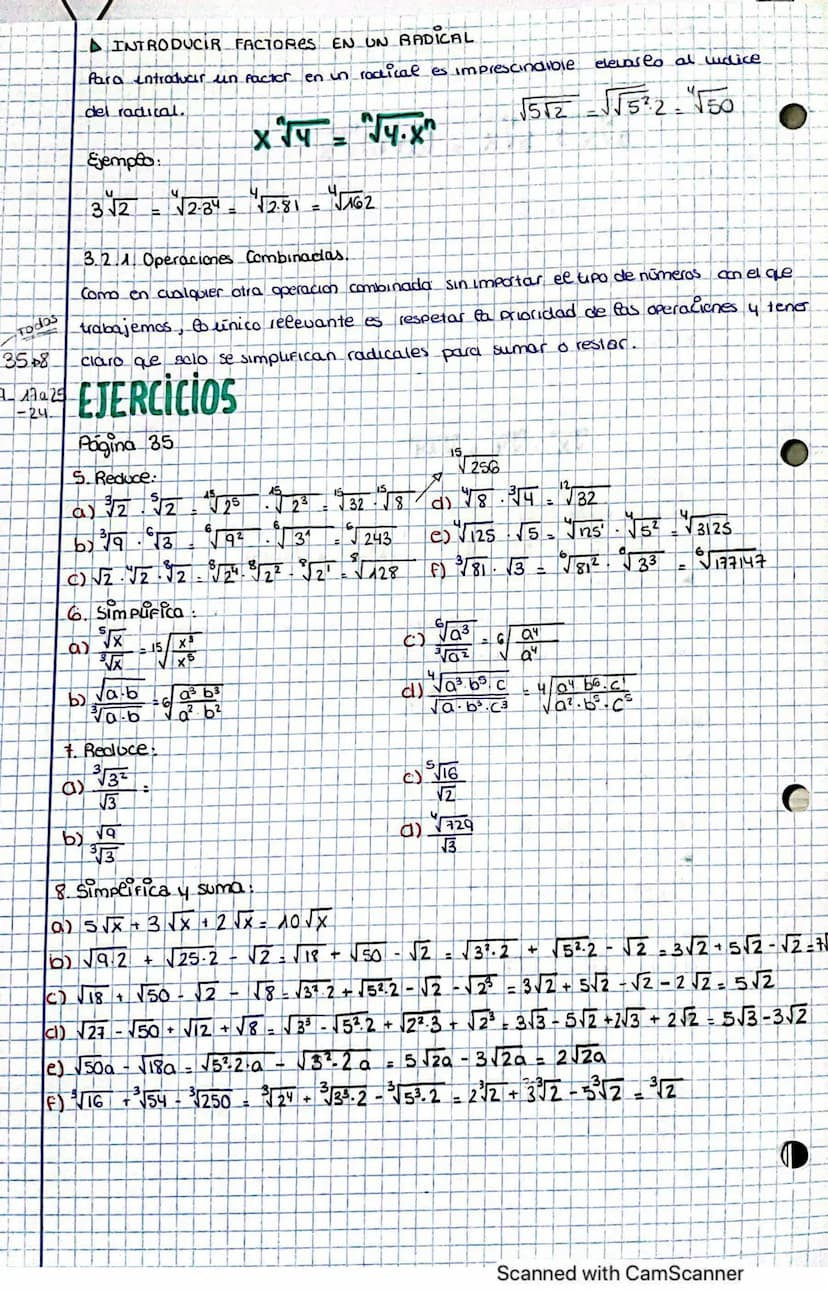 ▷ INTRODUCIR FACTORES EN UN RADICAL
Para introducir un factor en un radical es imprescindible elevarlo al indice
del radical.
x ⁿ√4 = ⁿ√4·xⁿ
√5√2 = √√5²·2 = ⁴√50
Ejemplo:
3 ⁴√2 = ⁴√2·3⁴ = ⁴√2·81 = ⁴√162
3.2.1. Operaciones Combinadas.
Como en cualquier otra operacion combinada sin importar el tipo de números con el que
trabajemos, lo único relevante es respetar la prioridad de las operaciones y tener
claro que solo se simplifican radicales para sumar o restar.
Todos
35
17a25
-24
EJERCICIOS
Página 35
5. Reduce:
a) ³√2 · ⁵√2 = ¹⁵√2⁵ · ¹⁵√2³ = ¹⁵√32 · ¹⁵√8 ↗ ¹⁵√256
b) ³√9 · ⁶√3 = ⁶√9² · ⁶√3¹ = ⁶√243
c) √2 · ⁴√2 · ⁸√2 = ⁸√2⁴ · ⁸√2² · ⁸√2¹ = ⁸√128
d) ⁴√8 · ³√4 = ¹²√32
e) ⁴√125 · √5 = ⁴√125¹ · ⁴√5² = ⁴√3125
f) ³√81 · √3 = ⁶√81² · ⁶√3³ = ⁶√177147
6. Simplifica:
a) ⁵√x / ³√x = ¹⁵√x³/x⁵
b) √a·b / ³√a·b = ⁶√a³ b³ / a²·b²
c) ⁶√a³ / ³√a² = ⁶√a⁴ / a⁴
d) ⁴√a³·b⁵·c / √a·b³·c³ = ⁴√a⁴ b⁶·c¹ / a²·b⁵·c⁵
7. Reduce:
a) ³√3² / √3 =
b) √9 / ³√3
c) ⁵√16 / √2
d) ⁴√729 / √3
8. Simplifica y suma:
a) 5√x + 3√x + 2√x = 10√x
b) √9·2 + √25·2 - √2 = √18 + √50 - √2 = √3²·2 + √5²·2 - √2 = 3√2 + 5√2 - √2 = 7√
c) √18 + √50 - √2 - √8 = √3²·2 + √5²·2 - √2 - √2³ = 3√2 + 5√2 - √2 - 2√2 = 5√2
d) √27 - √50 + √12 + √8 = √3³ - √5²·2 + √2²·3 + √2³ = 3√3 - 5√2 + 2√3 + 2√2 = 5√3 - 3√2
e) √50a - √18a = √5²·2·a - √3²·2a = 5√2a - 3√2a = 2√2a
f) ³√16 + ³√54 - ³√250 = ³√2⁴ + ³√3³·2 - ³√5³·2 = 2³√2 + 3³√2 - 5³√2 = ³√2
Scanned with CamScanner